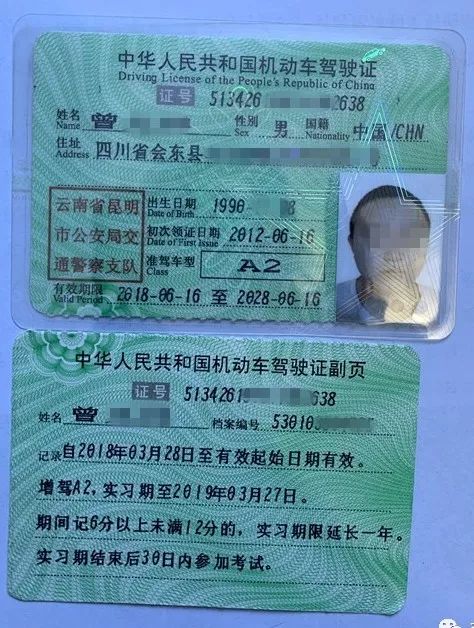 中华人民共和国机动车驾驶证
Driving License of the People's Republic of China
证号 513426 2638
姓名 曾 性别 男 国籍 中国/CHN
Name Sex Nationality
住址 四川省会东县
Address
云南省昆明
市公安局交
通警察支队
出生日期 1990- 8
Date of Birth
初次领证日期 2012-06-16
Date of First Issue
准驾车型 A2
Class
有效期限 2018-06-16 至 2028-06-16
Valid Period
中华人民共和国机动车驾驶证副页
证号 5134261 638
姓名 曾 档案编号 53010
记录 自2018年03月28日至有效起始日期有效。
增驾A2,实习期至2019年03月27日。
期间记6分以上未满12分的,实习期限延长一年。
实习期结束后30日内参加考试。